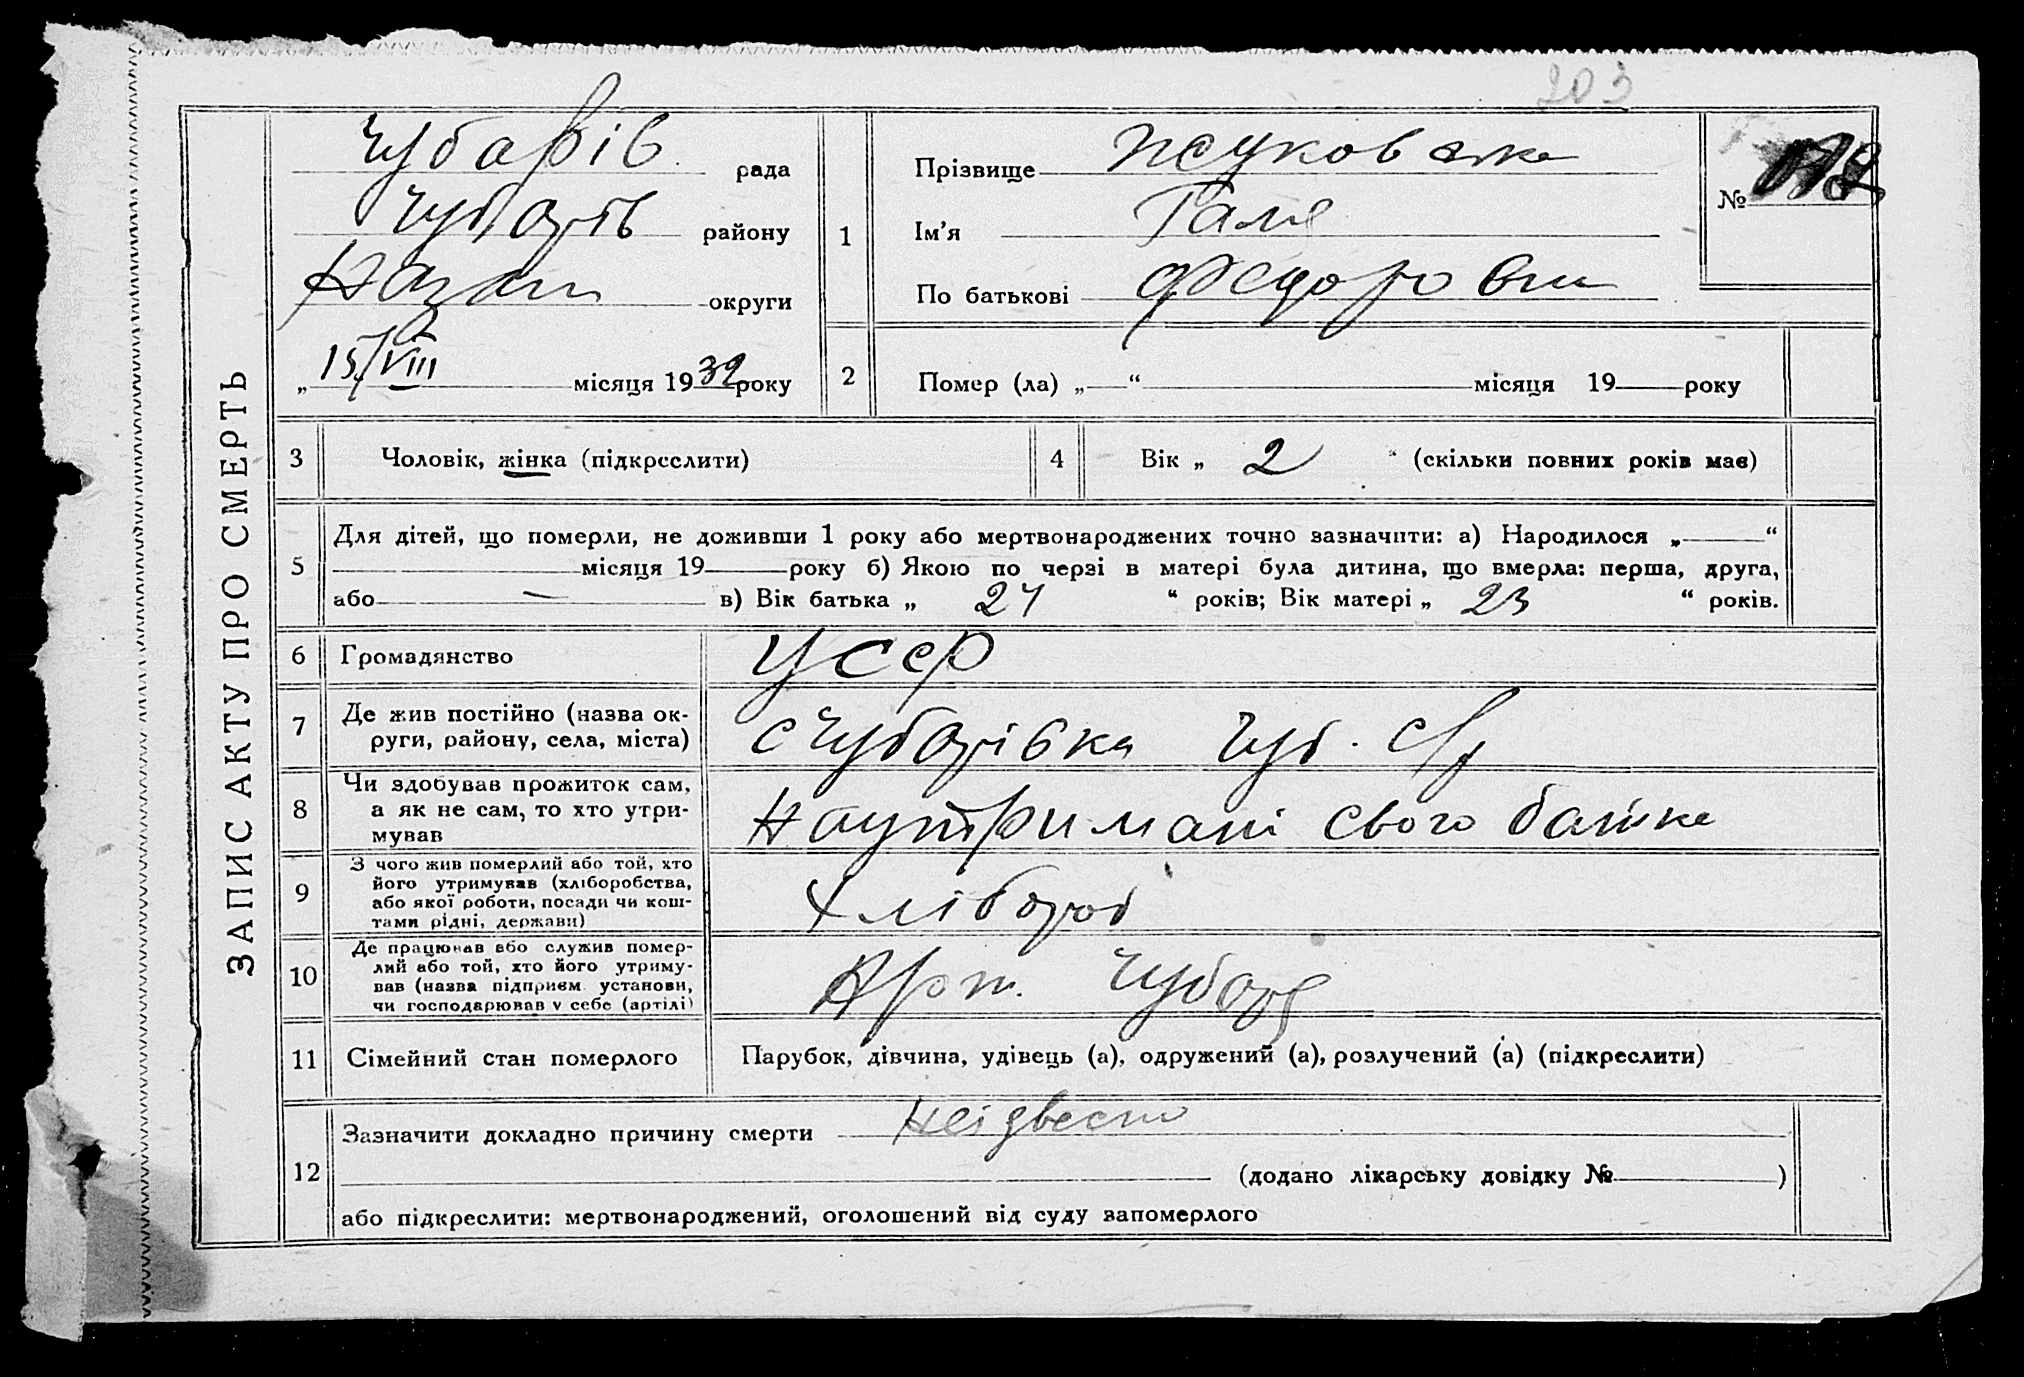 203
ЗАПИС АКТУ ПРО СМЕРТЬ
Чубарів рада
Чубарів району
округи
15/VIII місяця 1932 року
1
Прізвище Жуковська
Ім'я Галя
По батькові Федоровна
№
2
Помер (ла) „ “ місяця 19 року
3
Чоловік, жінка (підкреслити)
4
Вік „ 2 “ (скільки повних років має)
5
Для дітей, що померли, не доживши 1 року або мертвонароджених точно зазначити: а) Народилося „ “
місяця 19 року б) Якою по черзі в матері була дитина, що вмерла: перша, друга,
або — в) Вік батька „ 27 “ років; Вік матері „ 23 “ років.
6
Громадянство УССР
7
Де жив постійно (назва ок-
руги, району, села, міста)
с Чубарівка Чуб. с/р
8
Чи здобував прожиток сам,
а як не сам, то хто утри-
мував
На утримані свого батька
9
З чого жив померлий або той, хто
його утримував (хліборобства,
або якої роботи, посади чи кош-
тами рідні, держави)
Хлібороб
10
Де працював або служив помер-
лий або той, хто його утриму-
вав (назва підприєм. установи,
чи господарював у себе (артілі)
Арт. Чубаря
11
Сімейний стан померлого
Парубок, дівчина, удівець (а), одружений (а), розлучений (а) (підкреслити)
12
Зазначити докладно причину смерти Неізвестно
(додано лікарську довідку № )
або підкреслити: мертвонароджений, оголошений від суду запомерлого